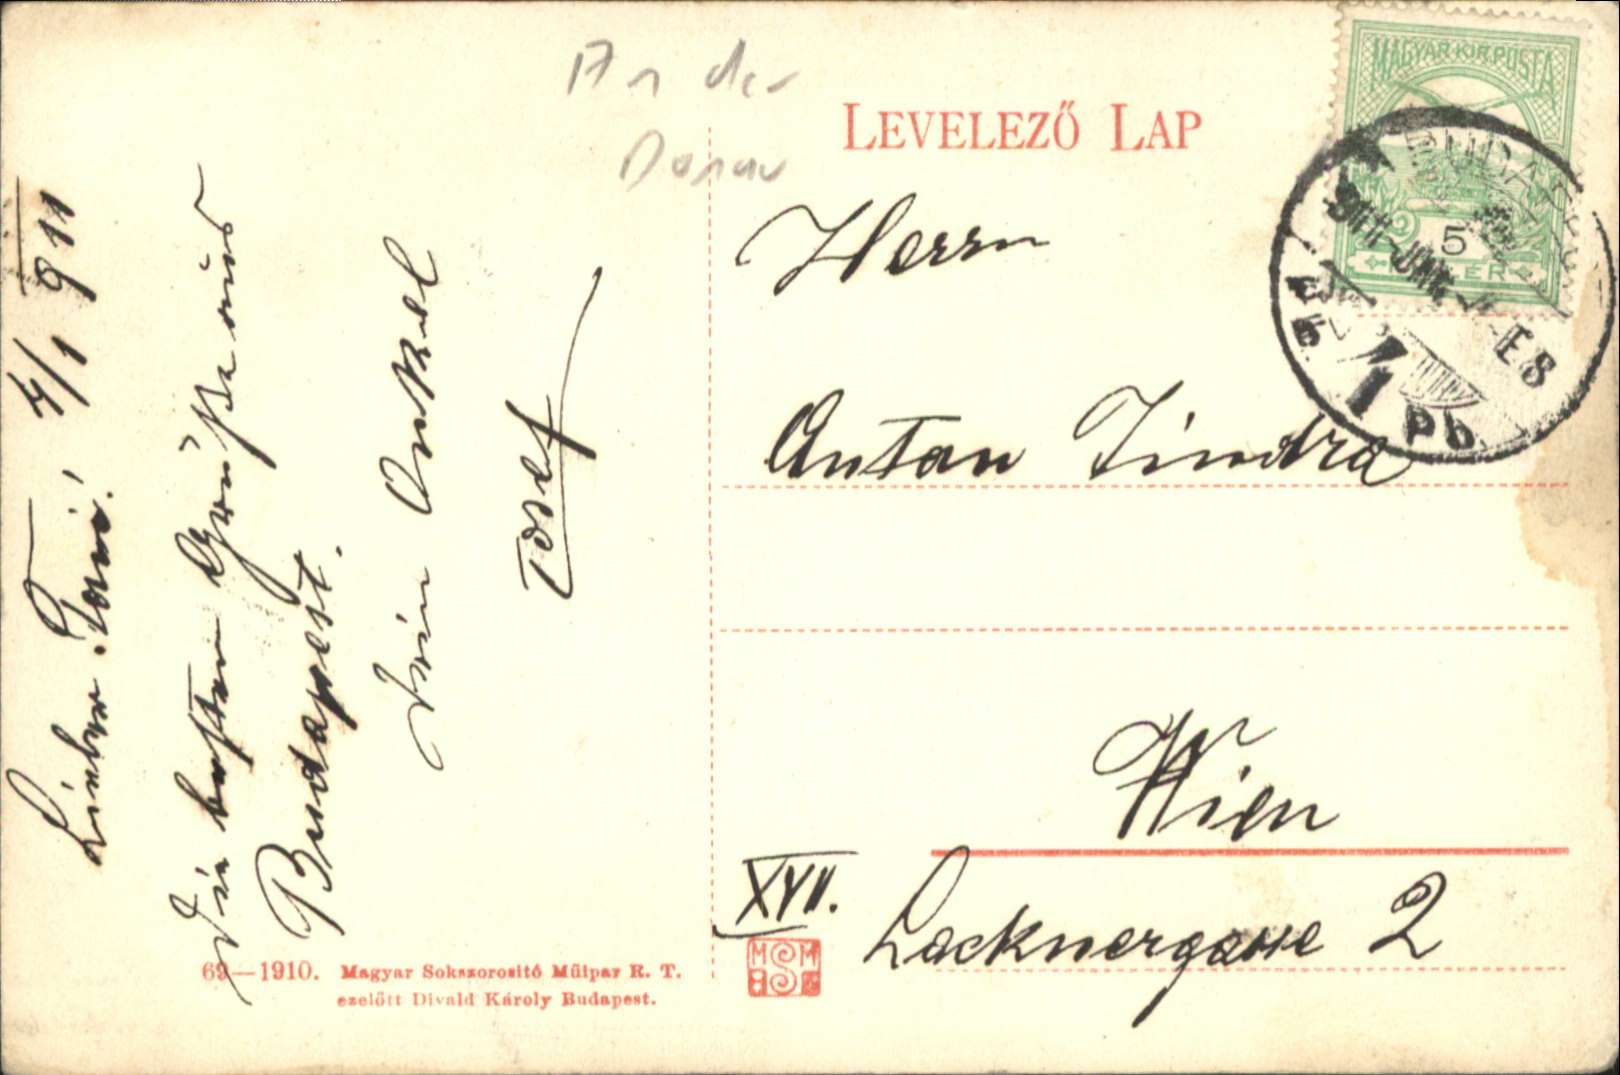 An der
Donau
LEVELEZŐ LAP
MAGYAR KIR. POSTA
5
Herrn
Antan Jindra
Wien
XVII.
Lacknergasse 2
4/1 911
Lieber Toni!
Die besten Grüße aus
Budapest.
Dein Onkel
Josef
69—1910. Magyar Sokszorosító Műipar R. T.
ezelőtt Divald Károly Budapest.